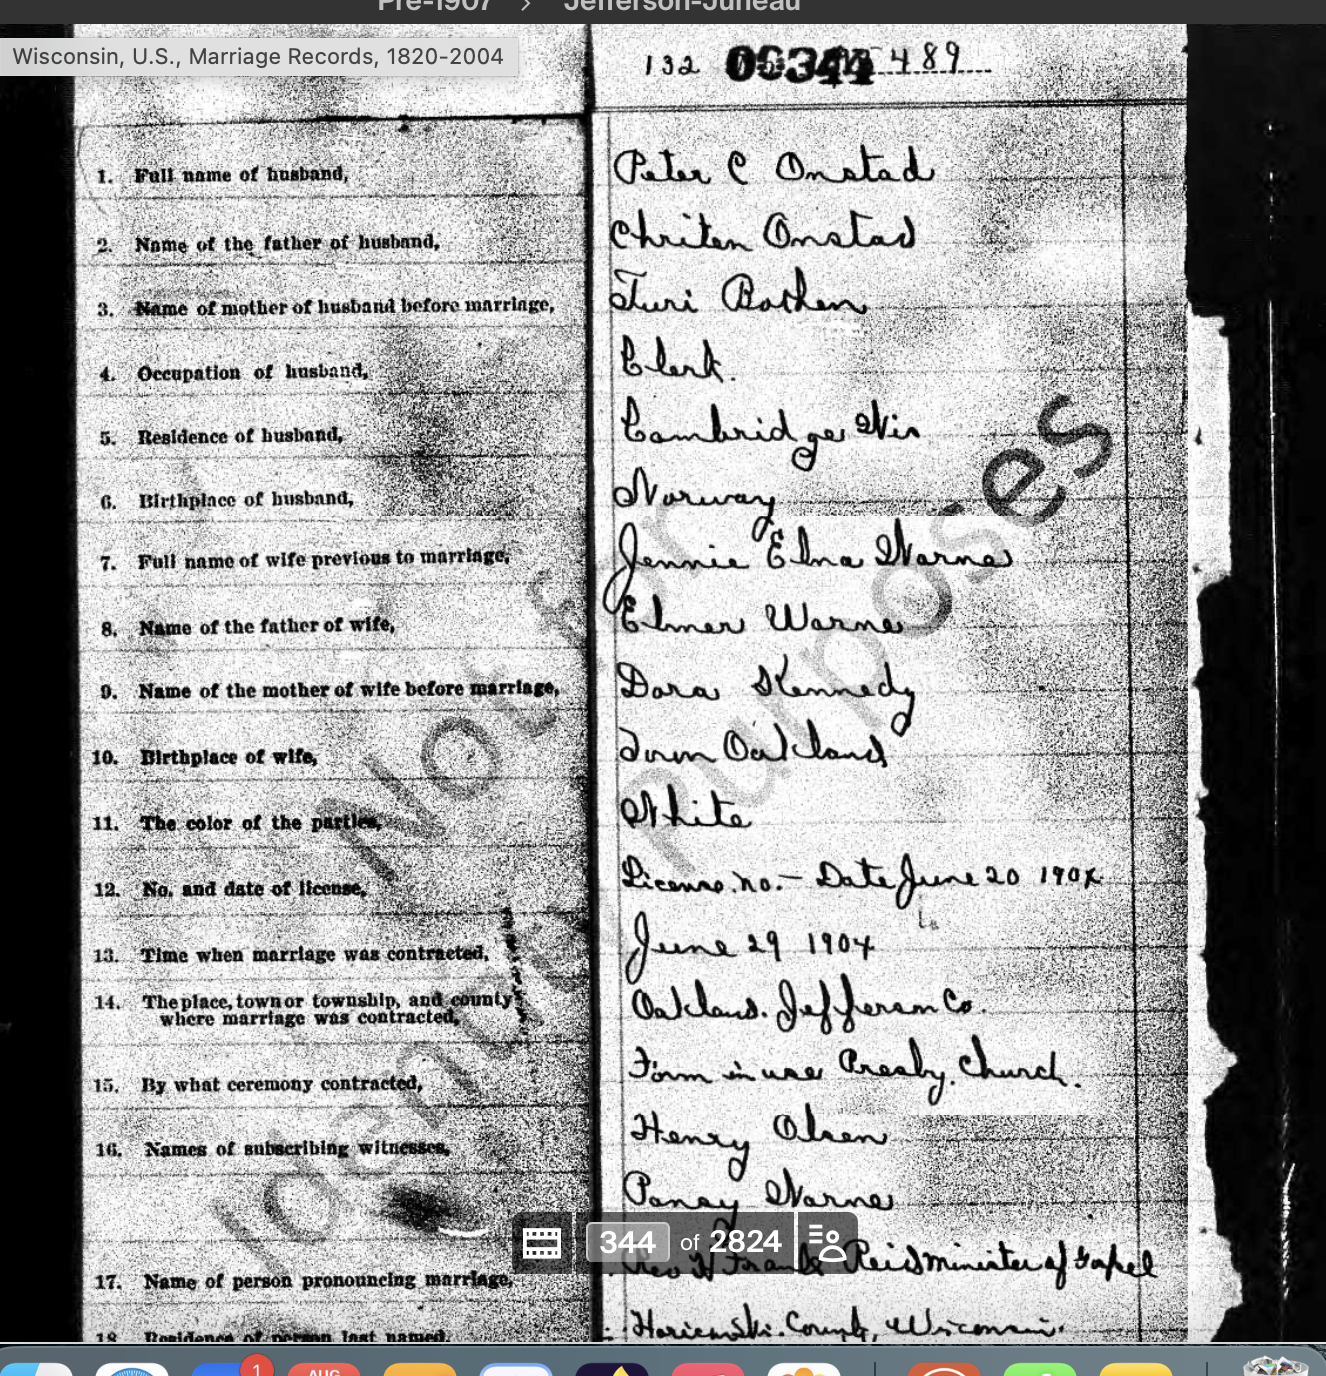 Pre-1907 > Jefferson-Juneau
Wisconsin, U.S., Marriage Records, 1820-2004
132 00344 489
1. Full name of husband, Peter C Onstad
2. Name of the father of husband, Chriten Onstad
3. Name of mother of husband before marriage, Turi Bothen
4. Occupation of husband, Clerk.
5. Residence of husband, Cambridge Wis
6. Birthplace of husband, Norway
7. Full name of wife previous to marriage, Jennie Elna Warne
8. Name of the father of wife, Elmer Warne
9. Name of the mother of wife before marriage, Dora Kennedy
10. Birthplace of wife, Town Oakland
11. The color of the parties, White
12. No. and date of license, License no. - Date June 20 1904
13. Time when marriage was contracted, June 29 1904
14. The place, town or township, and county where marriage was contracted, Oakland. Jefferson Co.
15. By what ceremony contracted, Form in use Presby. Church.
16. Names of subscribing witnesses, Henry Olsen
Pansy Warne
344 of 2824
17. Name of person pronouncing marriage, Rev Reid minister of Gospel
18 Residence of person last named, County, Wisconsin.
Not for
Identity purposes
1
AUG